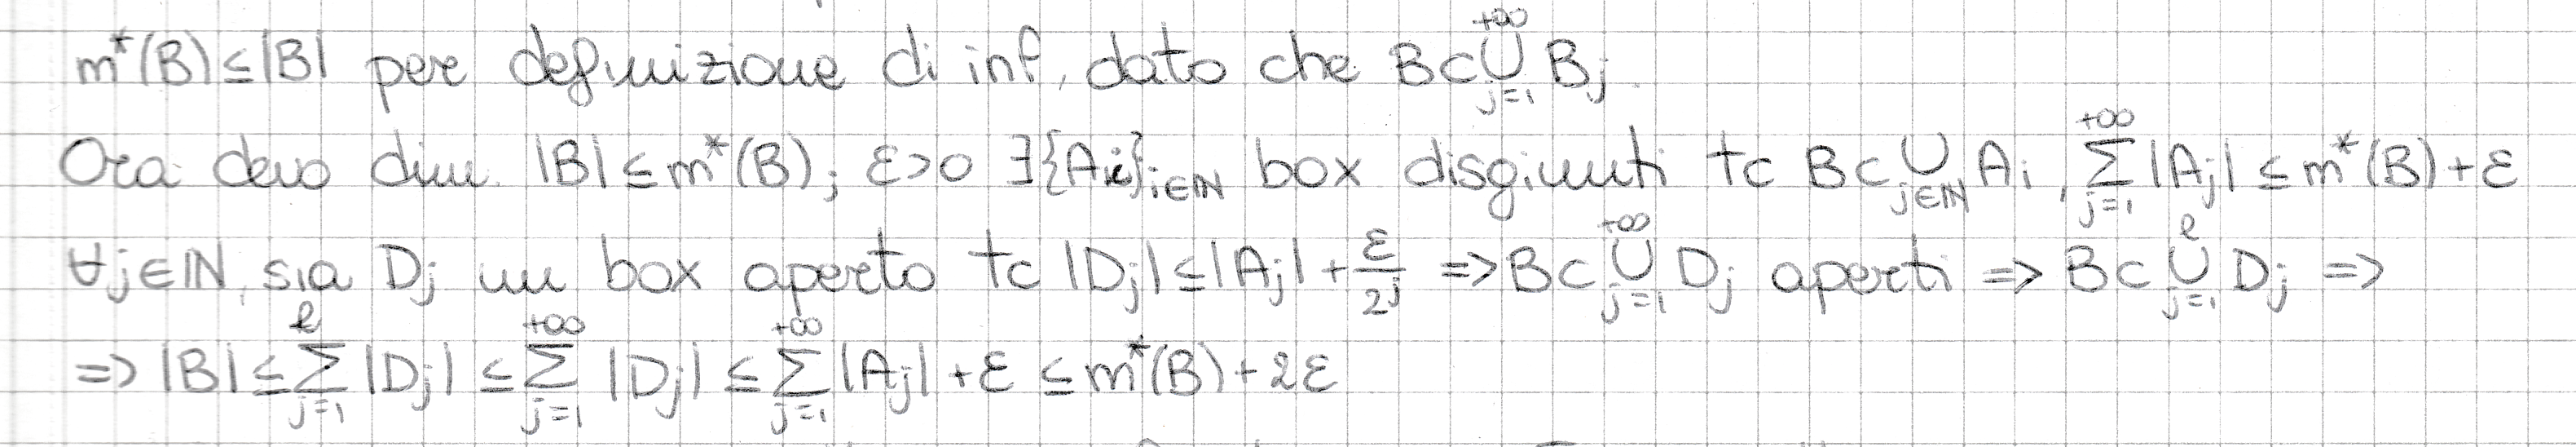 m*(B) ≤ |B| per definizione di inf, dato che B ⊂ ⋃_{j=1}^{+∞} B_j.
Ora devo dim. |B| ≤ m*(B); ε>0 ∃{A_i}_{i∈ℕ} box disgiunti tc B ⊂ ⋃_{j∈ℕ} A_i, ∑_{j=1}^{+∞} |A_j| ≤ m*(B)+ε
∀j∈ℕ, sia D_j un box aperto tc |D_j| ≤ |A_j| + ε/2^j => B ⊂ ⋃_{j=1}^{+∞} D_j aperti => B ⊂ ⋃_{j=1}^{ℓ} D_j =>
=> |B| ≤ ∑_{j=1}^{ℓ} |D_j| ≤ ∑_{j=1}^{+∞} |D_j| ≤ ∑_{j=1}^{+∞} |A_j| + ε ≤ m*(B) + 2ε